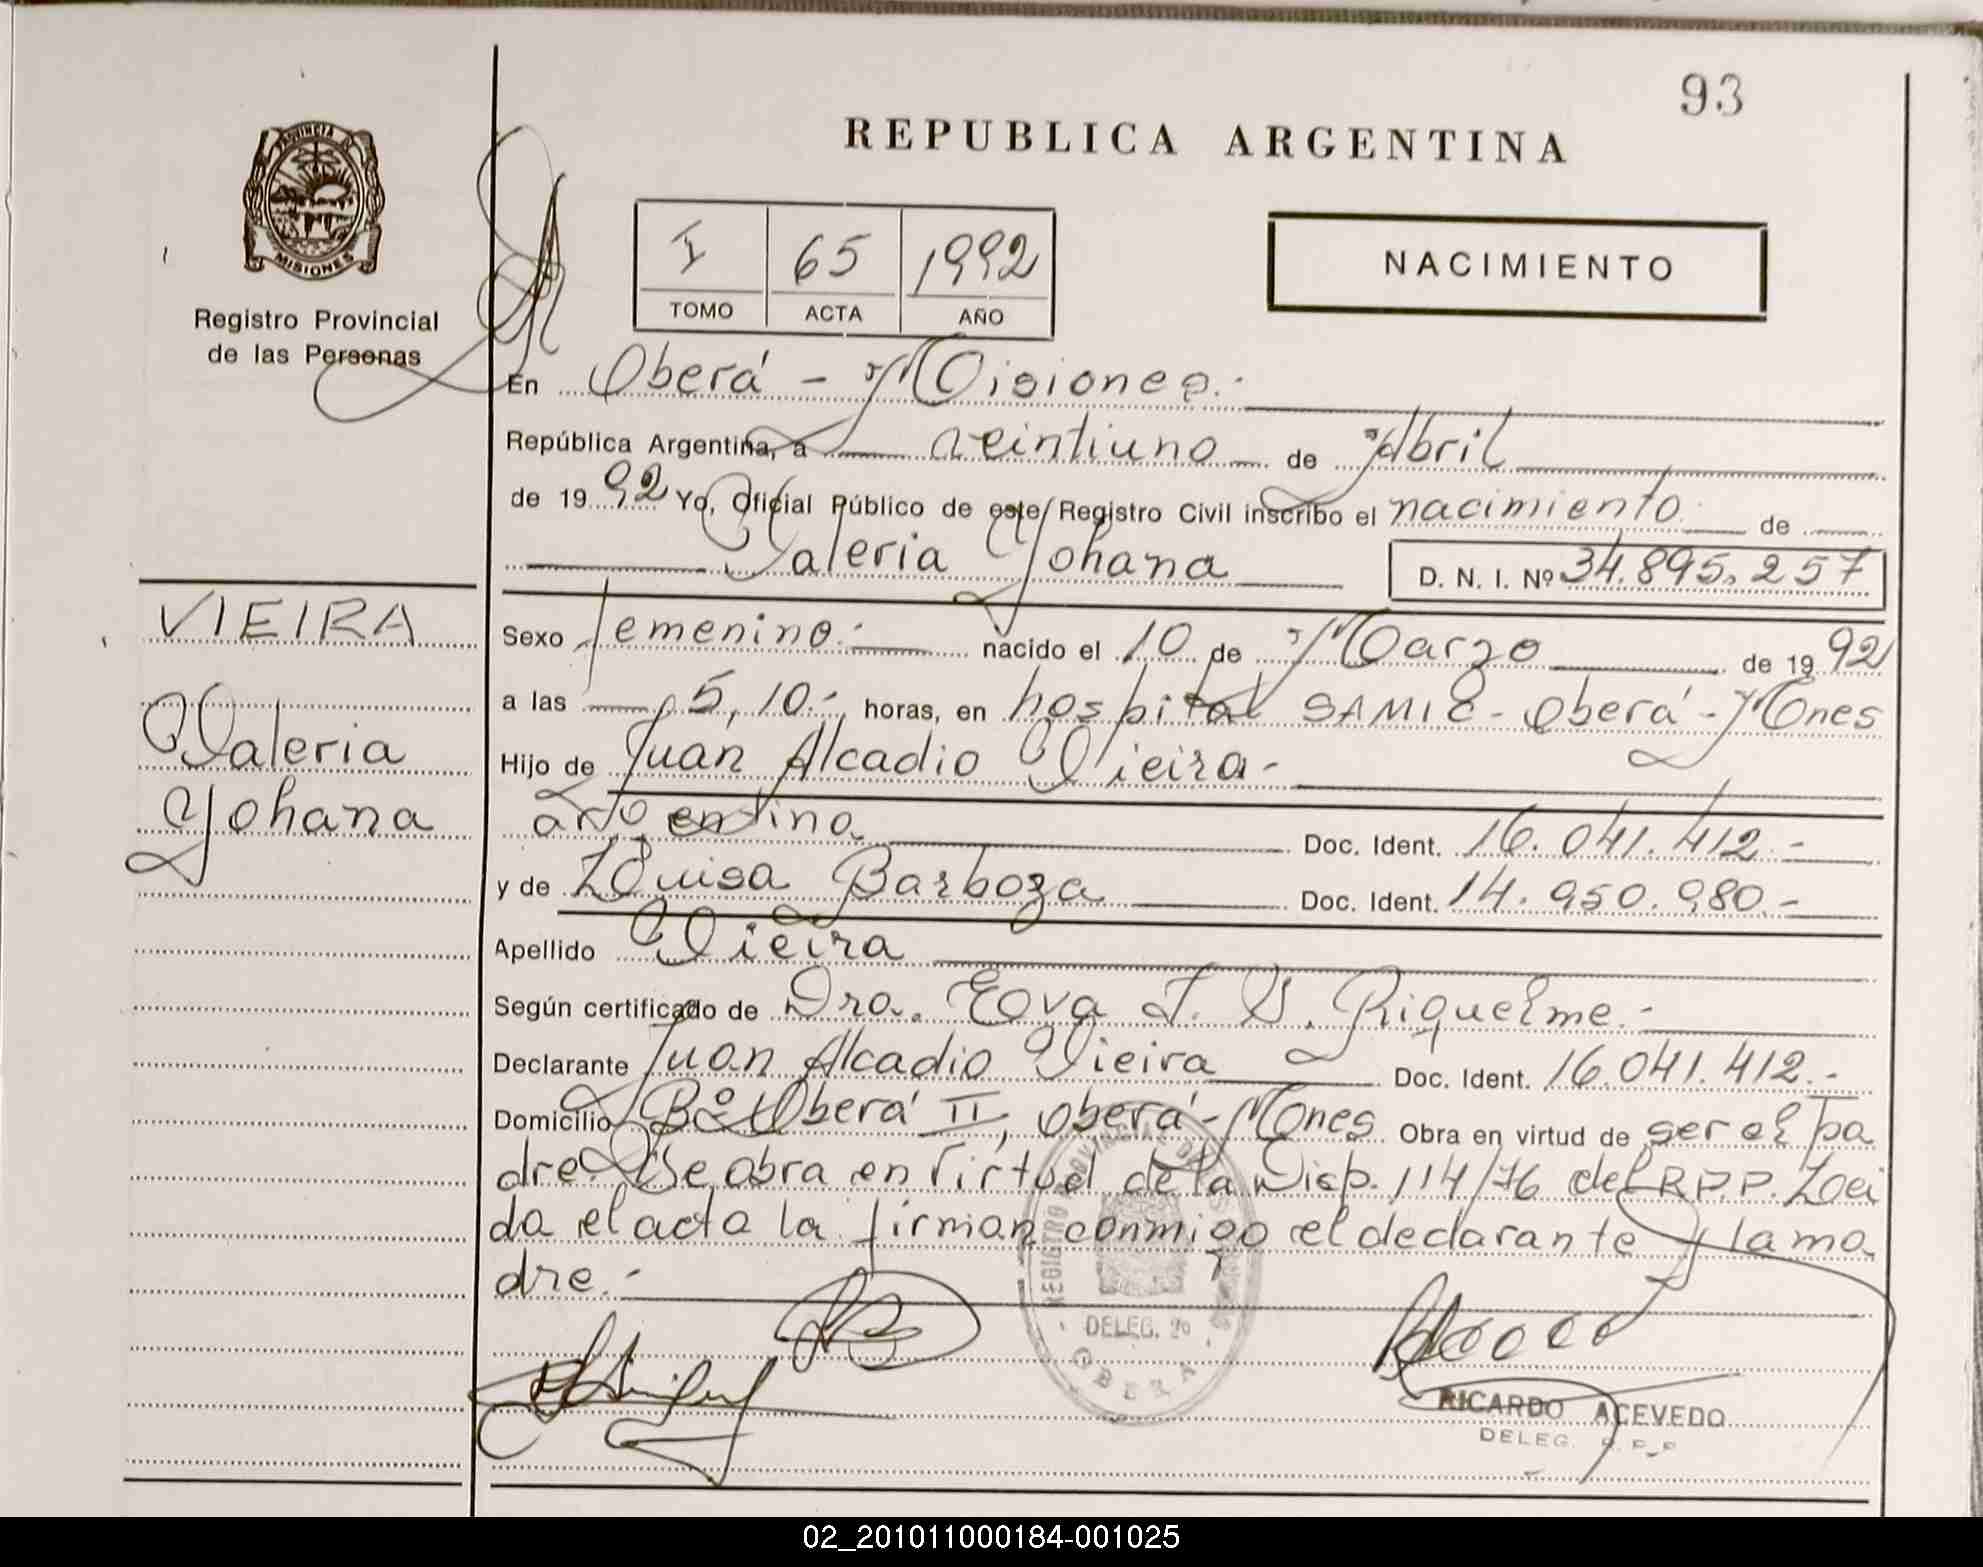 93
REPUBLICA ARGENTINA
PROVINCIA D MISIONES
Registro Provincial
de las Personas
I 65 1992
TOMO ACTA AÑO
NACIMIENTO
En Oberá - Misiones.-
República Argentina, a veintiuno de Abril
de 1992 Yo, Oficial Público de este Registro Civil inscribo el nacimiento de
Valeria Yohana D. N. I. Nº 34.895.257
VIEIRA
Valeria
Yohana
Sexo femenino.- nacido el 10 de Marzo de 1992
a las 5,10.- horas, en hospital SAMIC - Oberá - Mones
Hijo de Juan Alcadio Vieira-
argentino Doc. Ident. 16.041.412.-
y de Luisa Barboza Doc. Ident. 14.950.980.-
Apellido Vieira
Según certificado de Dra. Eva J. V. Riquelme.-
Declarante Juan Alcadio Vieira Doc. Ident. 16.041.412.-
Domicilio Bº Oberá II, Oberá - Mones Obra en virtud de ser el pa
dre. Se obra en virtud de la Disp. 114/76 del R.P.P. Leí
da el acta la firman conmigo el declarante y la ma
dre.-
REGISTRO PROVINCIAL DE LAS PERSONAS
DELEG. 20
OBERA
RICARDO ACEVEDO
DELEG. R.P.P
02_201011000184-001025